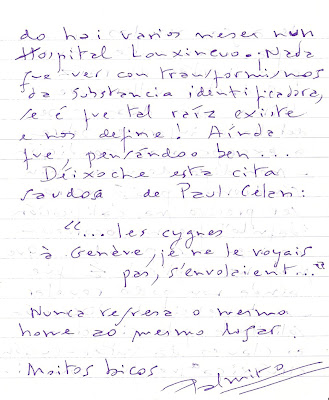 do hai varios meses nun
Hospital Lonxincuo. ¡Nada
que ver con transformismos
da substancia identificadora,
se é que tal raíz existe
e nos define! Aínda
que, pensándoo ben...
Déixoche esta cita
saudosa de Paul Celan:
"... les cygnes
à Genève, je ne le voyais
pas, s'envolaient..."
Nunca regresa o mesmo
home ao mesmo lugar.
Moitos bicos
Palmira